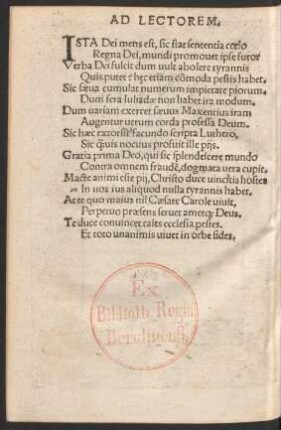 AD LECTOREM.
ISTA Dei mens est, sic stat sententia cœlo
Regna Dei, mundi promouet ipse furor
Verba Dei fulcit dum uult abolere tyrannis
Quis putet ę hęc etiam cōmoda pestis habet.
Sic sæua cumulat numerum impietate piorum.
Dum fera non habet ira modum.
Dum uariam exercet sæuus Maxentius iram
Augentur uerum corda professa Deum.
Sic hæc extorsit facundo scripta Luthero,
Sic q̃uis nocuius profuit ille pijs.
Gratia prima Deo, qui sic splendelcere mundo
Contra omnem fraudē, dogmata uera cupit.
Macte animi este pij, Christo duce uincitis hostes
In uos ius aliquod nulla tyrannis habet.
At te quo maius nil Cæsare Carole uiuit,
Perpetuo præsens seruet ametq; Deus.
Te duce conuincet tales ecclesia pestes.
Et toto unanimis uiuet in orbe fides.
Ex
Biblioth. Regia
Berolinensi.